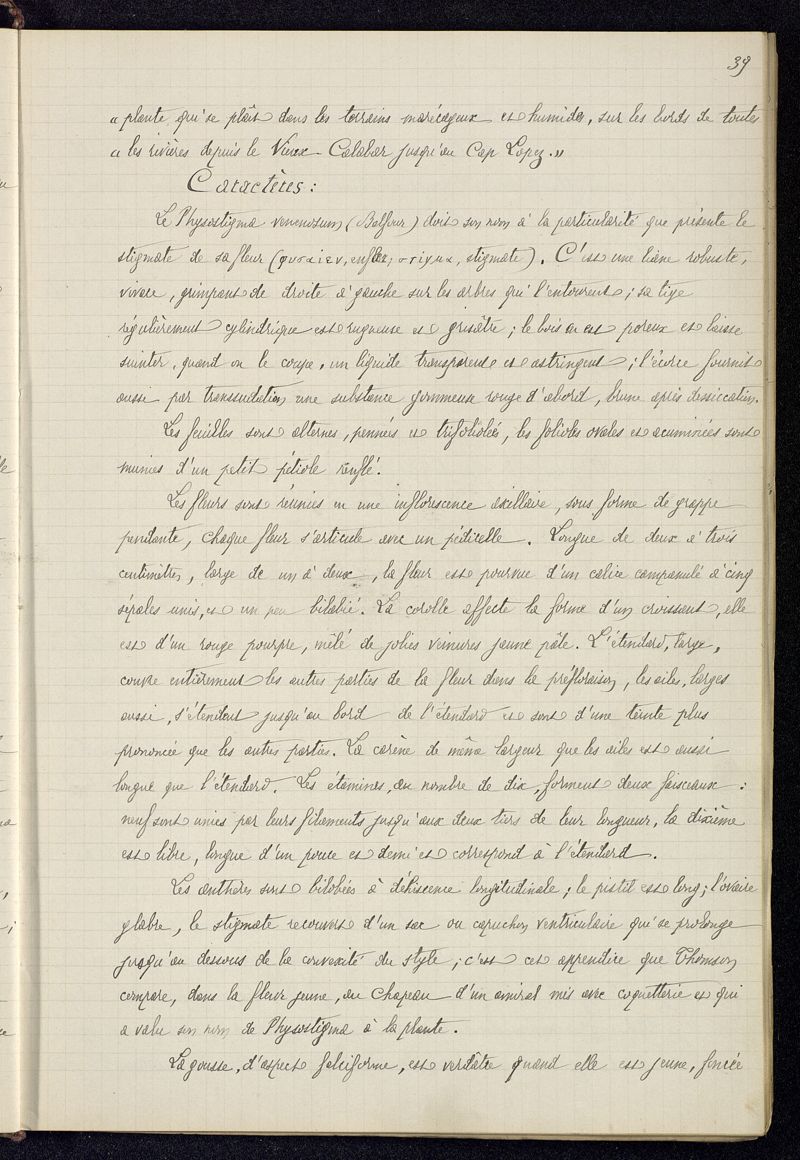 39
" plante qui se plaît dans les terrains marécageux et humides, sur les bords de toutes
" les rivières depuis le Vieux-Calabar jusqu'au Cap Lopez. "
Caractères :
Le Physostigma venenosum (Balfour) doit son nom à la particularité que présente le
stigmate de sa fleur (φυσαιεν, enfler, στιγμα, stigmate). C'est une liane robuste,
vivace, grimpant de droite à gauche sur les arbres qui l'entourent ; sa tige
régulièrement cylindrique est rugueuse et grisâtre ; le bois en est poreux et laisse
suinter, quand on le coupe, un liquide transparent et astringent ; l'écorce fournit
aussi par transsudation une substance gommeuse rouge d'abord, brune après dessiccation.
Les feuilles sont alternes, pennées et trifoliolées, les folioles ovales et acuminées sont
munies d'un petit pétiole renflé.
Les fleurs sont réunies en une inflorescence axillaire, sous forme de grappe
pendante, chaque fleur s'articule avec un pédicelle. Longue de deux à trois
centimètres, large de un à deux, la fleur est pourvue d'un calice campanulé à cinq
sépales unis, et un peu bilabié. La corolle affecte la forme d'un croissant, elle
est d'un rouge pourpre, mêlé de jolies veinures jaune pâle. L'étendard, large,
couvre entièrement les autres parties de la fleur dans la préfloraison, les ailes, larges
aussi, s'étendent jusqu'au bord de l'étendard et sont d'une teinte plus
prononcée que les autres parties. La carène de même largeur que les ailes est aussi
longue que l'étendard. Les étamines, au nombre de dix, forment deux faisceaux :
neuf sont unies par leurs filaments jusqu'aux deux tiers de leur longueur, la dixième
est libre, longue d'un pouce et demi et correspond à l'étendard.
Les anthères sont bilobées à déhiscence longitudinale ; le pistil est long ; l'ovaire
glabre, le stigmate recouvert d'un sac ou capuchon ventriculaire qui se prolonge
jusqu'au dessous de la convexité du style ; c'est cet appendice que Thomson
compare, dans la fleur jeune, au chapeau d'un amiral mis avec coquetterie et qui
a valu son nom de Physostigma à la plante.
La gousse, d'aspect falciforme, est verdâtre quand elle est jeune, foncée